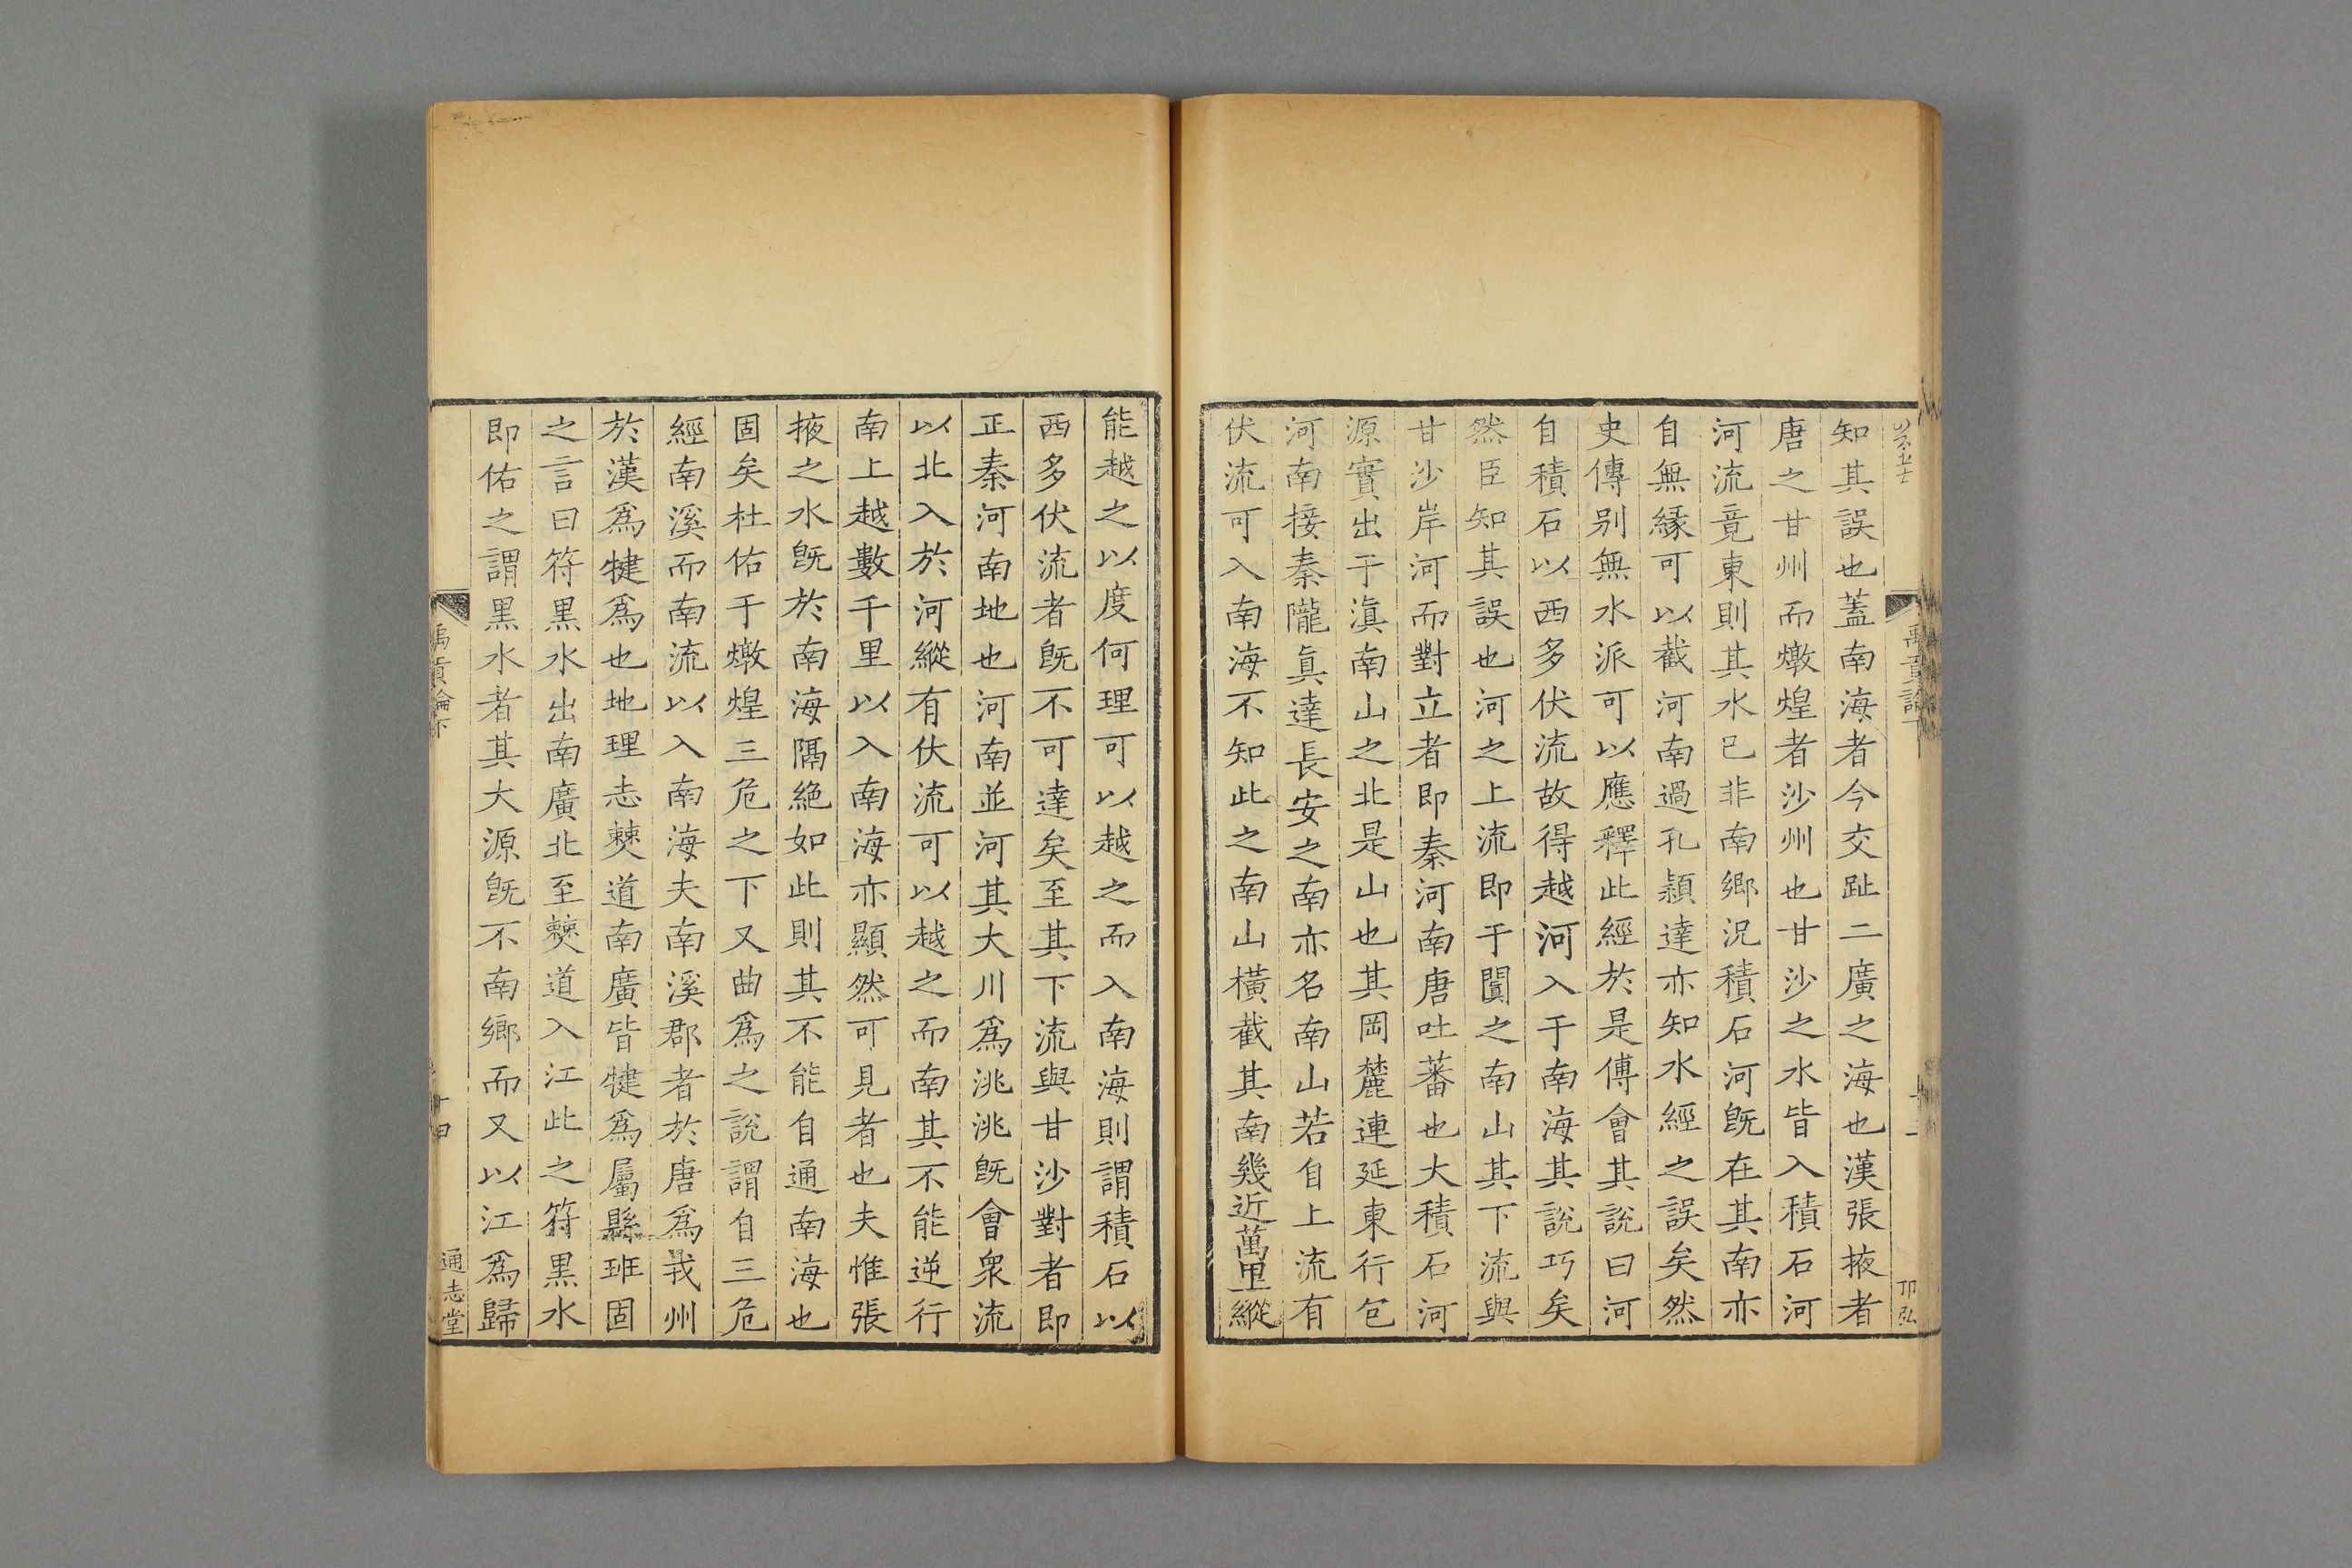 知其誤也蓋南海者今交趾二廣之海也漢張掖者
唐之甘州而燉煌者沙州也甘沙之水皆入積石河
河流竟東則其水已非南鄉況積石河既在其南亦
自無縁可以截河南過孔熲達亦知水經之誤矣然
史傳别無水派可以應釋此經於是傅會其說曰河
自積石以西多伏流故得越河入于南海其說巧矣
然臣知其誤也河之上流即于闐之南山其下流與
甘沙岸河而對立者即秦河南唐吐蕃也大積石河
源實出于滇南山之北是山也其岡麓連延東行包
河南接秦隴眞達長安之南亦名南山若自上流有
伏流可入南海不知此之南山橫截其南幾近萬里縱
能越之以度何理可以越之而入南海則謂積石以
西多伏流者既不可達矣至其下流與甘沙對者即
正秦河南地也河南並河其大川爲洮洮既會衆流
以北入於河縱有伏流可以越之而南其不能逆行
南上越數千里以入南海亦顯然可見者也夫惟張
掖之水既於南海隔絶如此則其不能自通南海也
固矣杜佑于燉煌三危之下又曲爲之說謂自三危
經南溪而南流以入南海夫南溪郡者於唐爲戎州
於漢爲犍爲也地理志僰道南廣皆犍爲屬縣班固
之言曰符黒水出南廣北至僰道入江此之符黒水
即佑之謂黒水者其大源既不南鄉而又以江爲歸
禹貢論下
通志堂